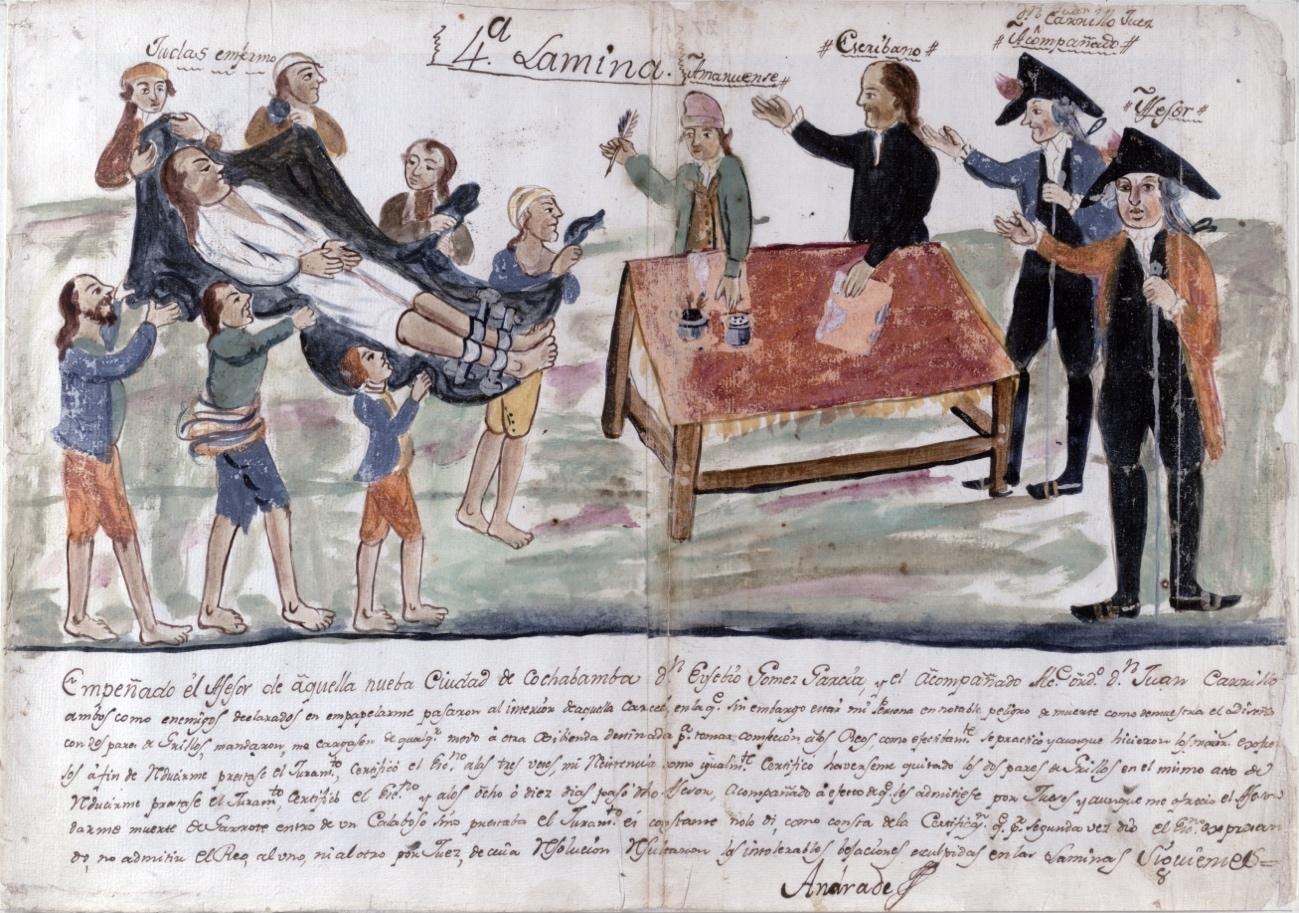 Judas enfermo
4.ª Lamina.
Amanuense
# Escribano #
Dn Juan Carrillo Juez
# Acompañado #
# Asesor #
Empeñado el Asesor de aquella nueba Ciudad de Cochabamba dn Eusebio Gomez Garcia, y el Acompañado Alce. ordo. dn Juan Carrillo
ambos como enemigos declarados en empapelarme pasaron al interior de aquella Carcel, en la q. sin embargo estar mi Persona en notable peligro de muerte como demuestra el
con dos pares de Grillos, mandaron, me cargasen de qualqr. modo à otra Vibienda destinada pa. tomar confecion à los Reos, como efectibamte. se practicò y aunque hicieron los maiores
à fin de reducirme prestase el Juramto. Certificò el Esno. à las tres veces, mi Resistencia como igualmte. Certificò haverseme quitado los dos pares de Grillos en el mismo acto de
reducirme prestase el Juramto. Certificò el Esno. y a los ocho ò diez dias paso dho Asesor, Acompañado à efecto de q. les admitiese por Jueses y aunque me ofreciò el Asesor
darme muerte de Garrote entro de un Calaboso sino prestaba el Juramto. es constante nolo di, como consta de la Certificn. q. pr. segunda vez diò el Esno.
do, no admitir el Reo, al uno, ni al otro por Juez, de cuia resolucion resultaron las intolerables besaciones esculpidas en las Laminas Siguientes=
Andrade
8